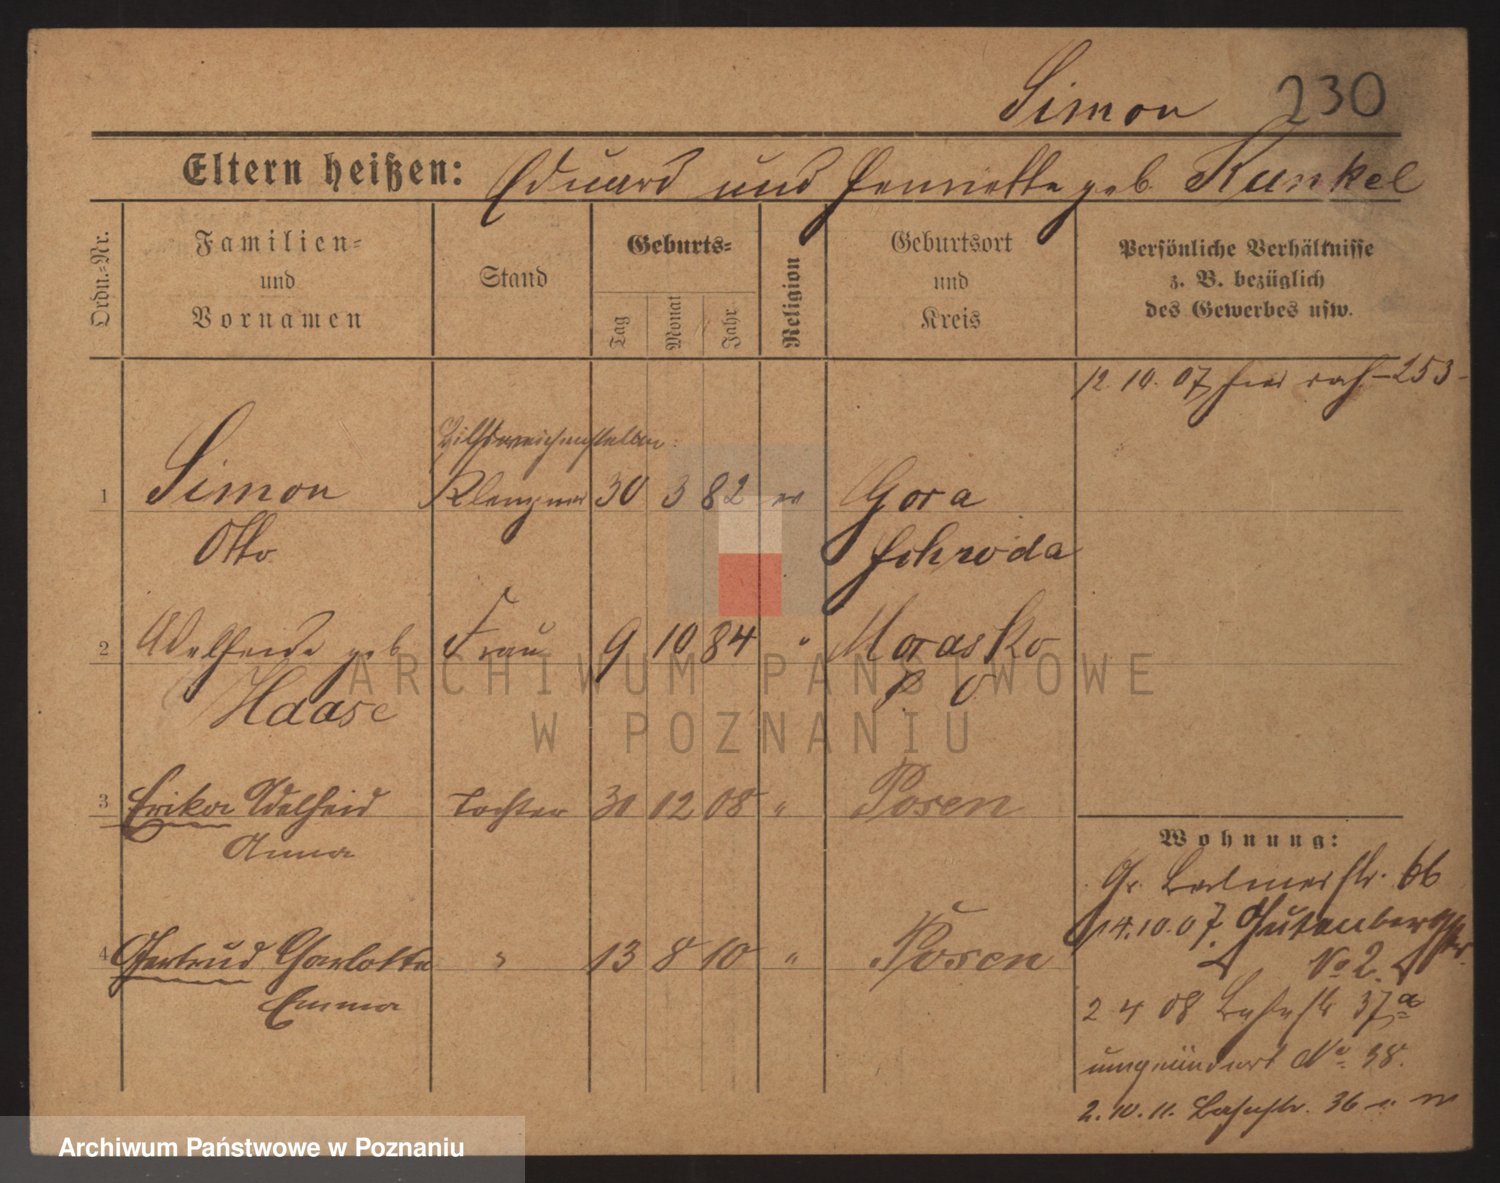 Simon 230
Eltern heißen: Eduard und Henriette geb. Kunkel
Ordn.-Nr.
Familien-
und
Vornamen
Stand
Geburts-
Tag
Monat
Jahr
Religion
Geburtsort
und
Kreis
Persönliche Verhältnisse
z. B. bezüglich
des Gewerbes usw.
12. 10. 07 253
1 Simon Klempner 30 3 82 ev Gora
Otto Schroda
2 Adelheide geb Frau 9 10 84 " Morasko
Haase P O
3 Erika Adelheid Tochter 30 12 08 " Posen
Anna
4 Gertrud Charlotte " 13 8 10 " Posen
Emma
Wohnung:
Gr. Berlinerstr. 66
14.10.07. Gutenbergstr.
No 2.
2 4 08 37a
umgeändert No. 38.
2.10.11. 36
ARCHIWUM PAŃSTWOWE
W POZNANIU
Archiwum Państwowe w Poznaniu